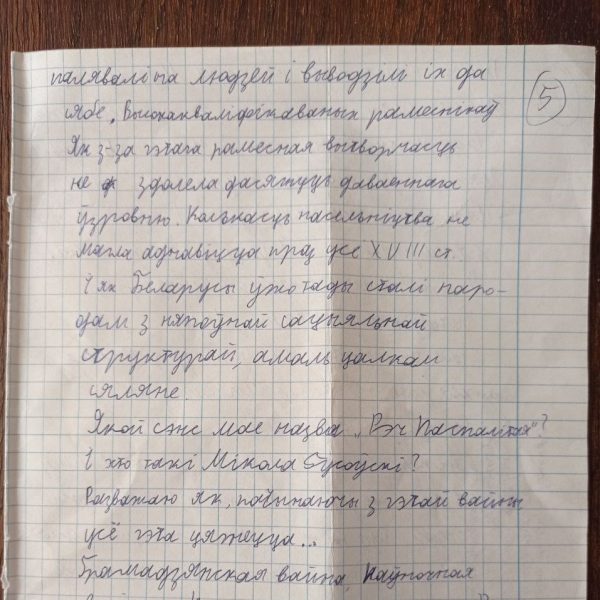 палявалі на людзей і вывозілі іх да
5
сябе. Высокакваліфікаваных рамеснікаў
Як з-за гэтага рамесная вытворчасць
не здолела дасягнуць даваеннага
ўзроўню. Колькасць насельніцтва не
магла аднавіцца праз усё XVIII ст.
І як Беларусы ўжо тады сталі наро-
дам з няпоўнай сацыяльнай
структурай, амаль цалкам
сяляне.
Якой сэнс мае назва „Рэч Паспалітая"?
І хто такі Мікола Гусоўскі?
Разважаю як, пачынаючы з гэтай вайны
усё гэта цяжецца...
Грамадзянская вайна, Паўночная